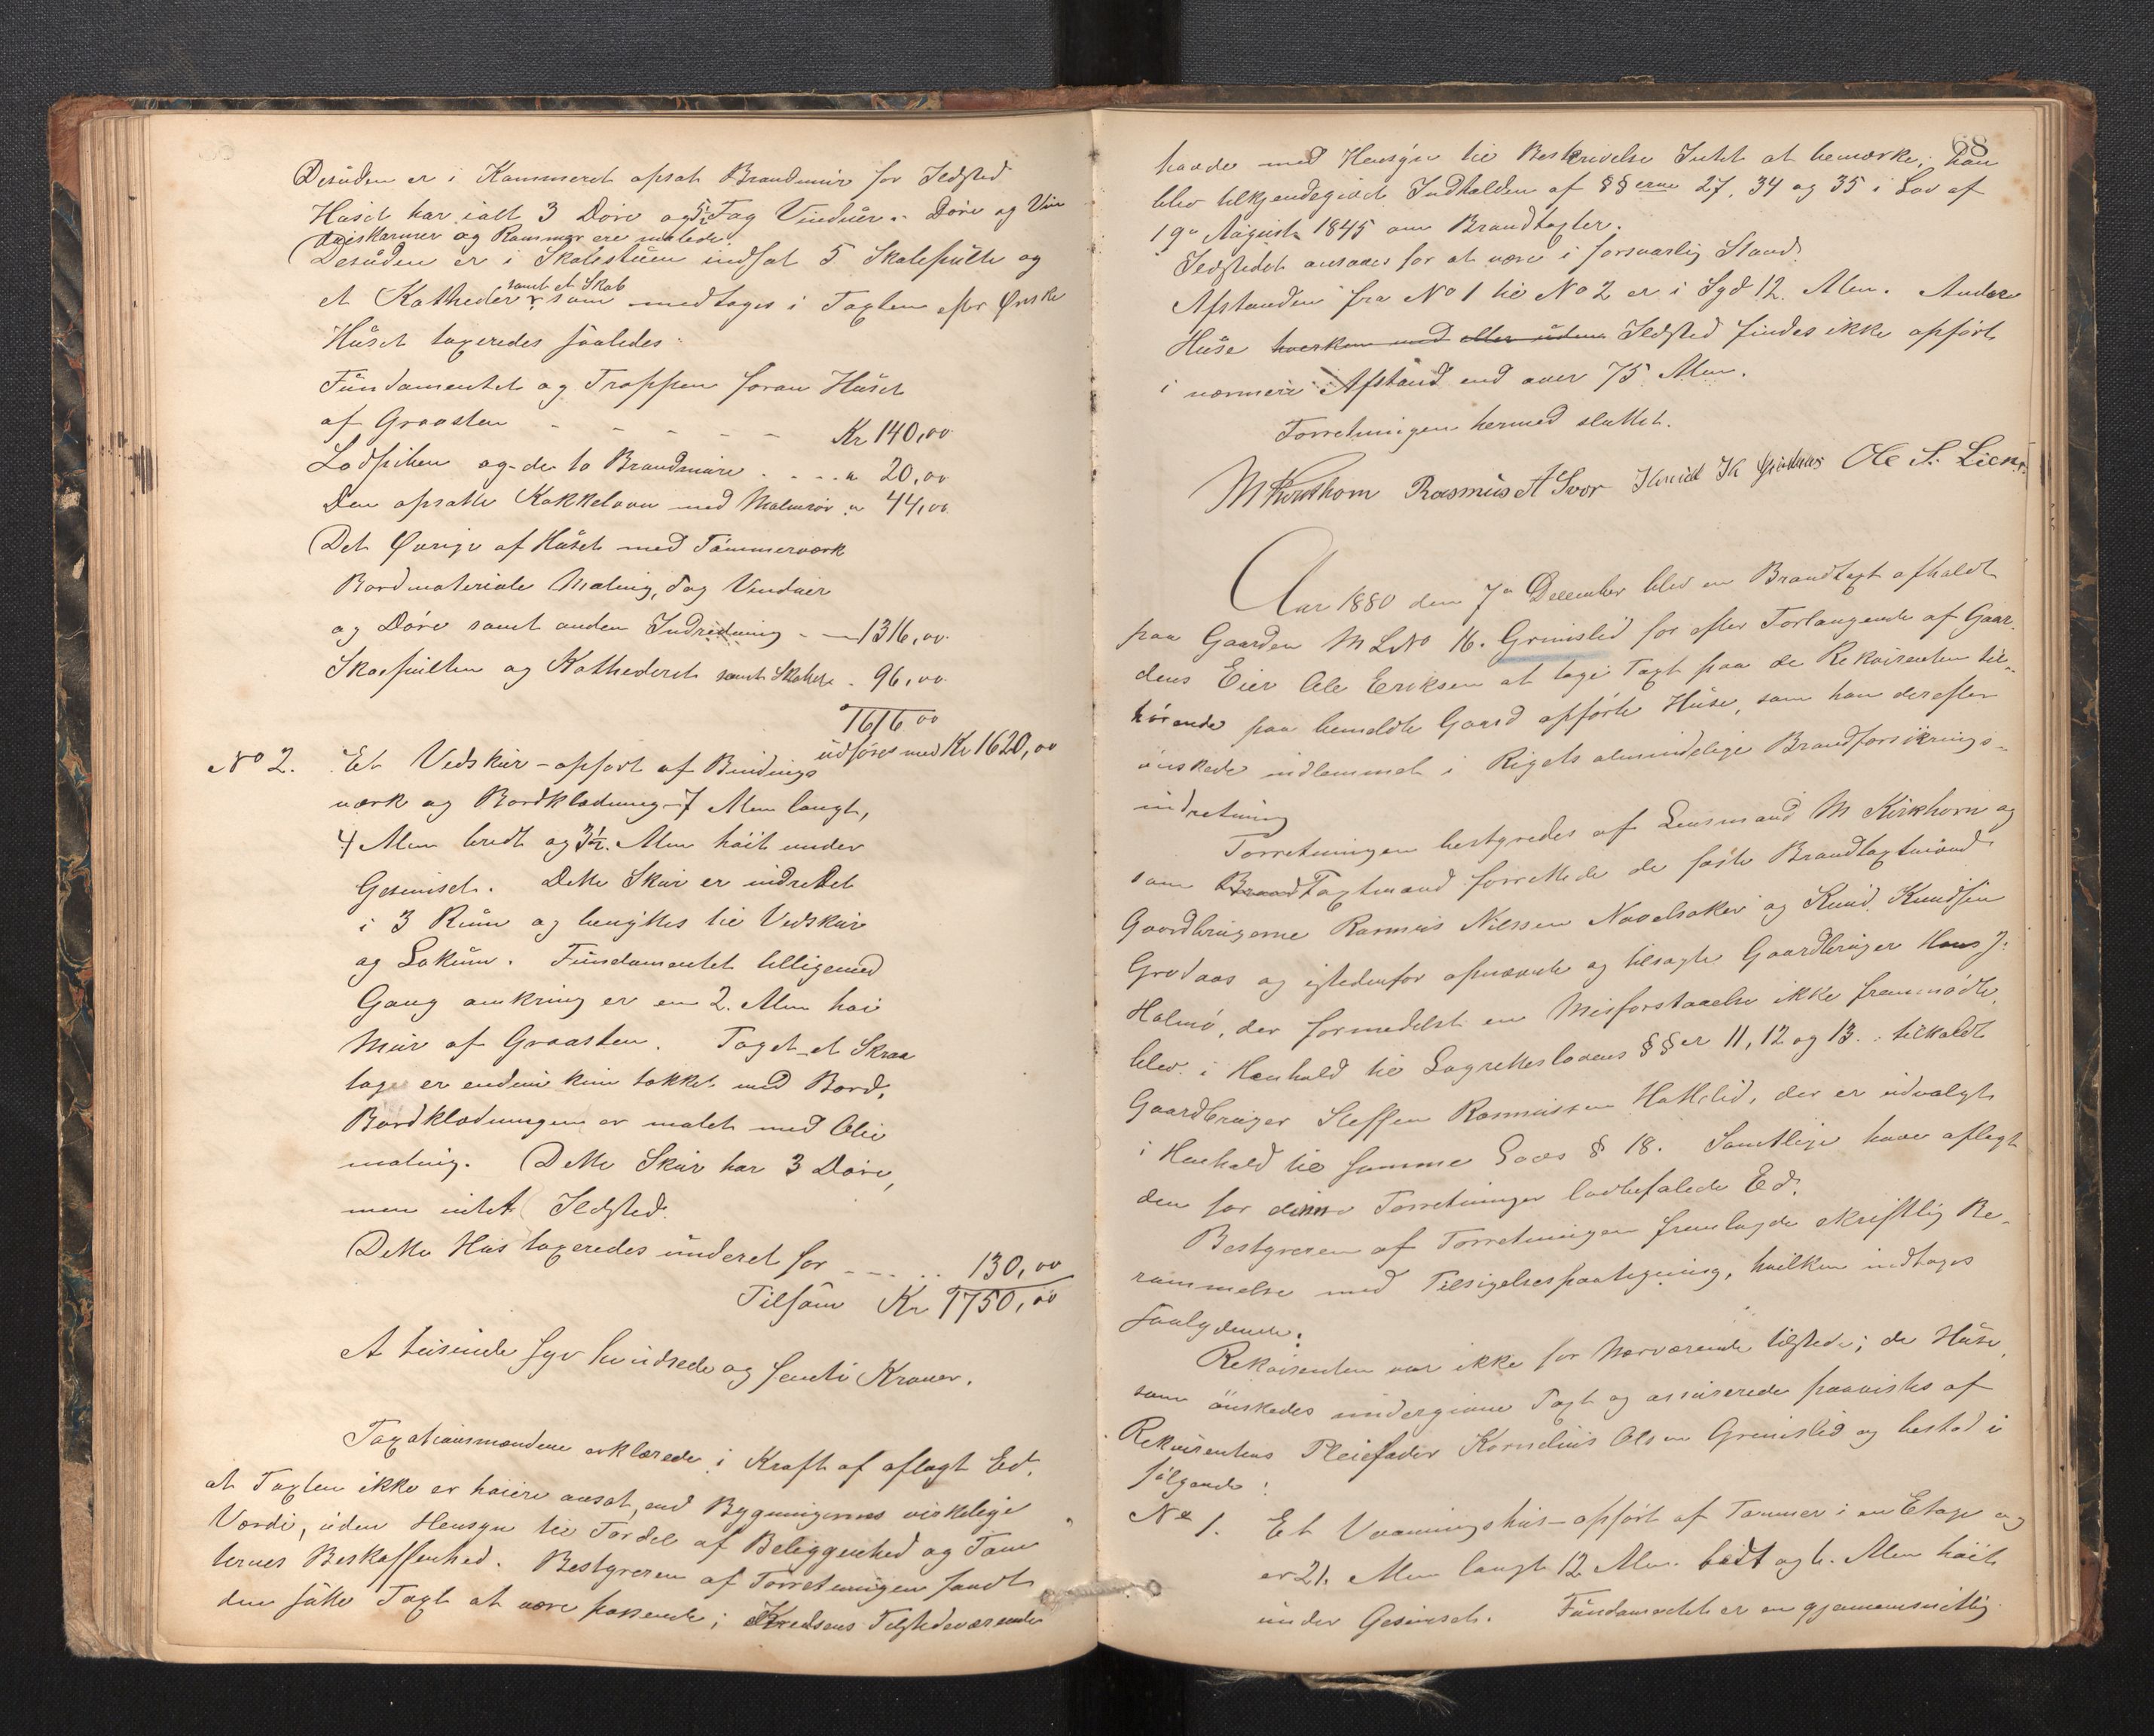 Desuden er i Kammeret opsat Brandmur for Ildsted
Huset har ialt 3 Døre og 5 Fag Vinduer. Døre og Vin
dueskarmer og Rammer ere malede.
Desuden er i Skolestuen indsat 5 Skolepulte og
et Katheder samt et Skab som medtages i Taxten efter Ønske
Huset taxeredes saaledes:
Fundamentet og Trappen foran Huset
af Graasten - - - - - - Kr 140,00
Lodpiben og de to Brandmure . . . . " 20,00
Den opsatte Kakkelovn med Malmrør " 44,00
Det Øvrige af Huset med Tømmerværk
Bordmateriale Maling, Tag Vinduer
og Døre samt anden Indredning - - 1316,00
Skolepulten og Kathederet samt Skabet - 96,00
1616 00
udføres med Kr 1620,00
No 2. Et Vedskur - opført af Bindings
værk og Bordklædning - 7 Alen langt,
4 Alen bredt og 3½ Alen høit under
Gesimset. Dette Skur er indredet
i 3 Rum og benyttes til Vedskur
og Lokum. Fundamentet tilligemed
Gang omkring er en 2. Alen høi
Mur af Graasten. Taget et Skraa
tag er endnu kun tækket med Bord.
Bordklædningen er malet med Olie
maling. Dette Skur har 3 Døre,
men intet Ildsted.
Dette Hus taxeredes underet for - - . . 130,00
Tilsam Kr 1750,00
Et tusinde syv hundrede og femti Kroner.
Taxationsmændene erklærede i Kraft af aflagt Ed,
at Taxten ikke er høiere ansat, end Bygningernes virkelige
Værdi, uden Hensyn til Fordel af Beliggenhed og Tom
ternes Beskaffenhed. Bestyreren af Forretningen fandt
den satte Taxt at være passende; Kredsens Tilstedeværende
68
havde med Hensyn til Beskrivelse Intet at bemærke; han
blev tilkjendegivet Indholden af §§erne 27, 34 og 35 i Lov af
19de August 1845 om Brandtaxter.
Ildstedet ansaaes for at være i forsvarlig Stand.
Afstanden fra No 1 til No 2 er i Syd 12. Alen. Andre
Huse hverken med eller uden Ildsted findes ikke opført
i nærmere Afstand end over 75 Alen.
Forretningen hermed sluttet.
M Kirkhorn Rasmus A Svor Knud K Grodaas Ole S. Lien
Aar 1880 den 7de December blev en Brandtaxt afholdt
paa Gaarden M L No 16. Grimslid for efter Forlangende af Gaar
dens Eier Ole Eriksen at tage Taxt paa de Rekvirenten til-
hørende paa bemeldte Gaard opførte Huse, som han derefter
ønskede indlemmet i Rigets almindelige Brandforsikrings-
indretning
Forretningen bestyredes af Lensmand M Kirkhorn og
som Brand Taxtmænd forrettede de faste Brandtaxtmænd
Gaardbrugerne Rasmus Nilssen Navelsaker og Knud Knudsen
Grodaas og istedenfor opnævnte og tilsagte Gaardbruger Hans J.
Holmø, der formedelst en Misforstaaelse ikke fremmødte,
blev i Henhold til Lagretteslovens §§er 11, 12 og 13. tilkaldt
Gaardbruger Steffen Rasmussen Hattelid, der er udvalgt
i Henhold til samme Lovs § 18. Samtlige have aflagt
den for denne Forretninger lovbefalede Ed.
Bestyreren af Forretningen fremlagde skriftlig Be-
rammelse med Tilsigelsespaategning, hvilken indtages
saalydende:
Rekvirenten var ikke for Nærværende tilstede; de Huse,
som ønskedes undergivne Taxt og assurerede paavistes af
Rekvirentens Pleiefader Kornelius Olsen Grimslid og bestod i
følgende:
No 1. Et Vaaningshus - opført af Tømmer i en Etage og
er 21. Alen langt 12 Alen. bredt og 6. Alen høit
under Gesimset. Fundamentet er en gjennemsnitlig